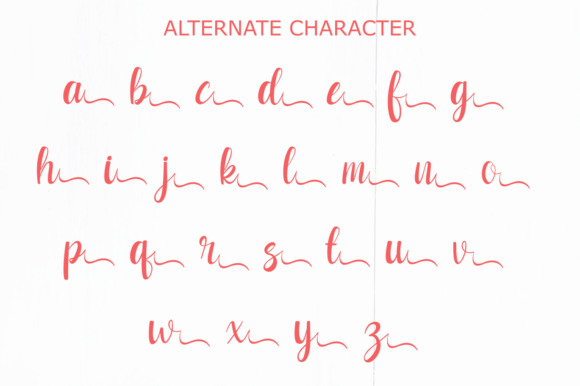 ALTERNATE CHARACTER
a b c d e f g
h i j k l m n o
p q r s t u v
w x y z